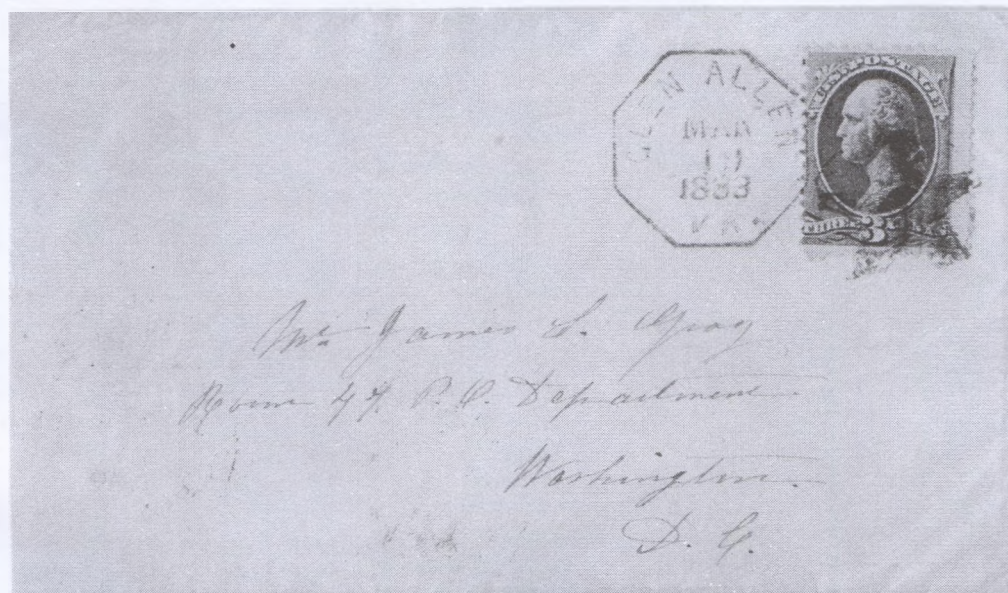 GLEN ALLEN
MAR
1883
VA.
U.S. POSTAGE
3
Mr James C. Gray
Room 47. P.O. Department
Washington
D. C.